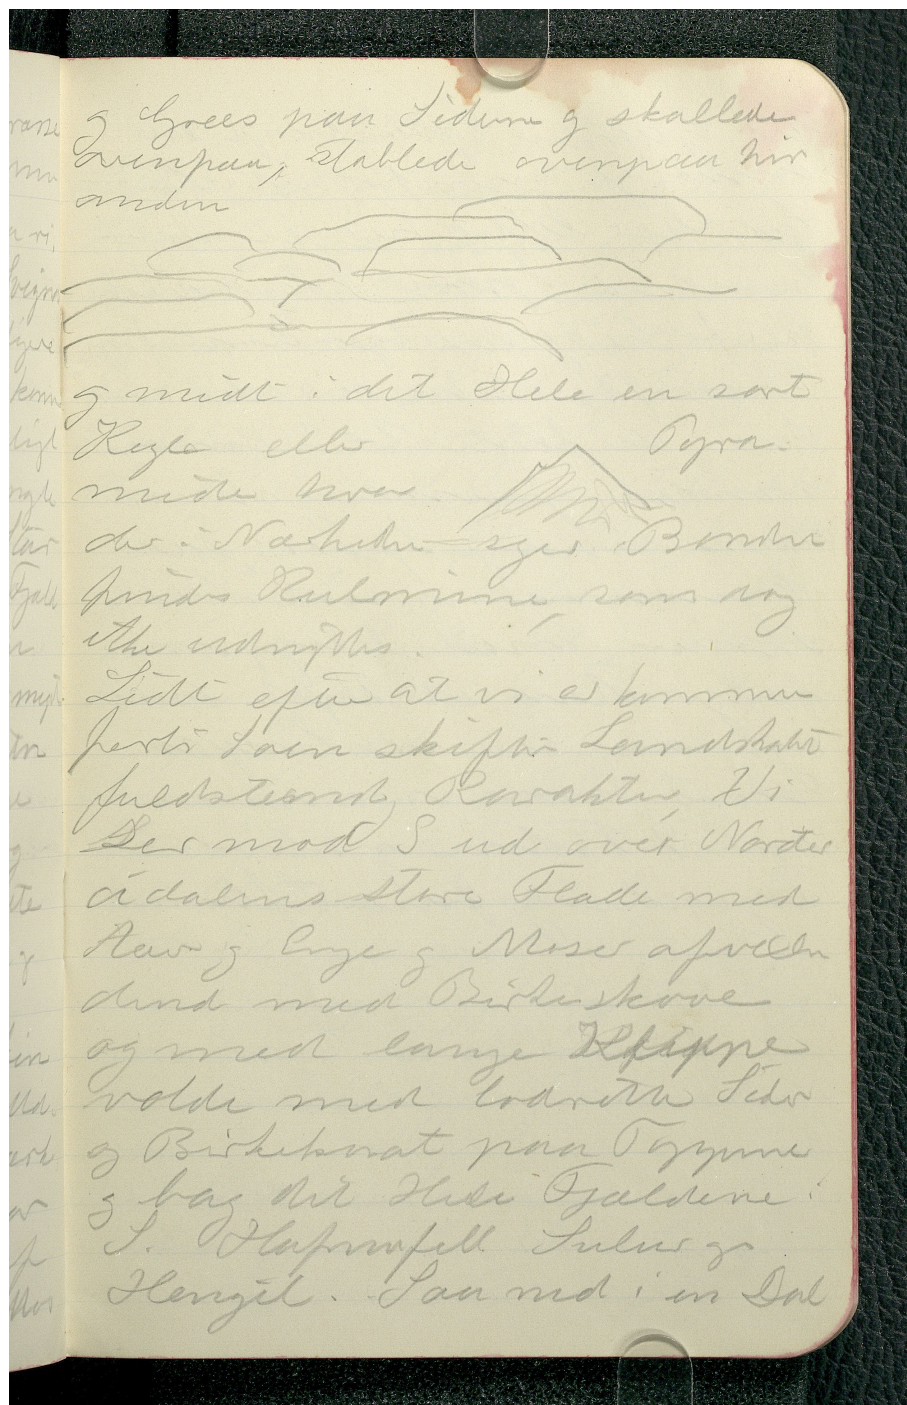 og Græs paa Siderne og skallede
ovenpaa, stablede ovenpaa hin
anden
og midt i det Hele en sort
Kegle eller Pyra-
mide hvor
der i Nærheden siger Bonden
findes Kulmine, som dog
ikke udnyttes.
Lidt efter at vi er kommen
forbi Søen skifter Landskabet
fuldstændig Karakter. Vi
Ser mod S ud over Norder
ádalens store Flade med
Aaer og Enge og Moser afvexlen
dend med Birkeskove
og med lange Klippe
volde med lodrette Sider
og Birkekrat paa Toppene
og bag det Hele Fjældene i
S. Hafnafell Sulur og
Hengil. Saa ned i en Dal